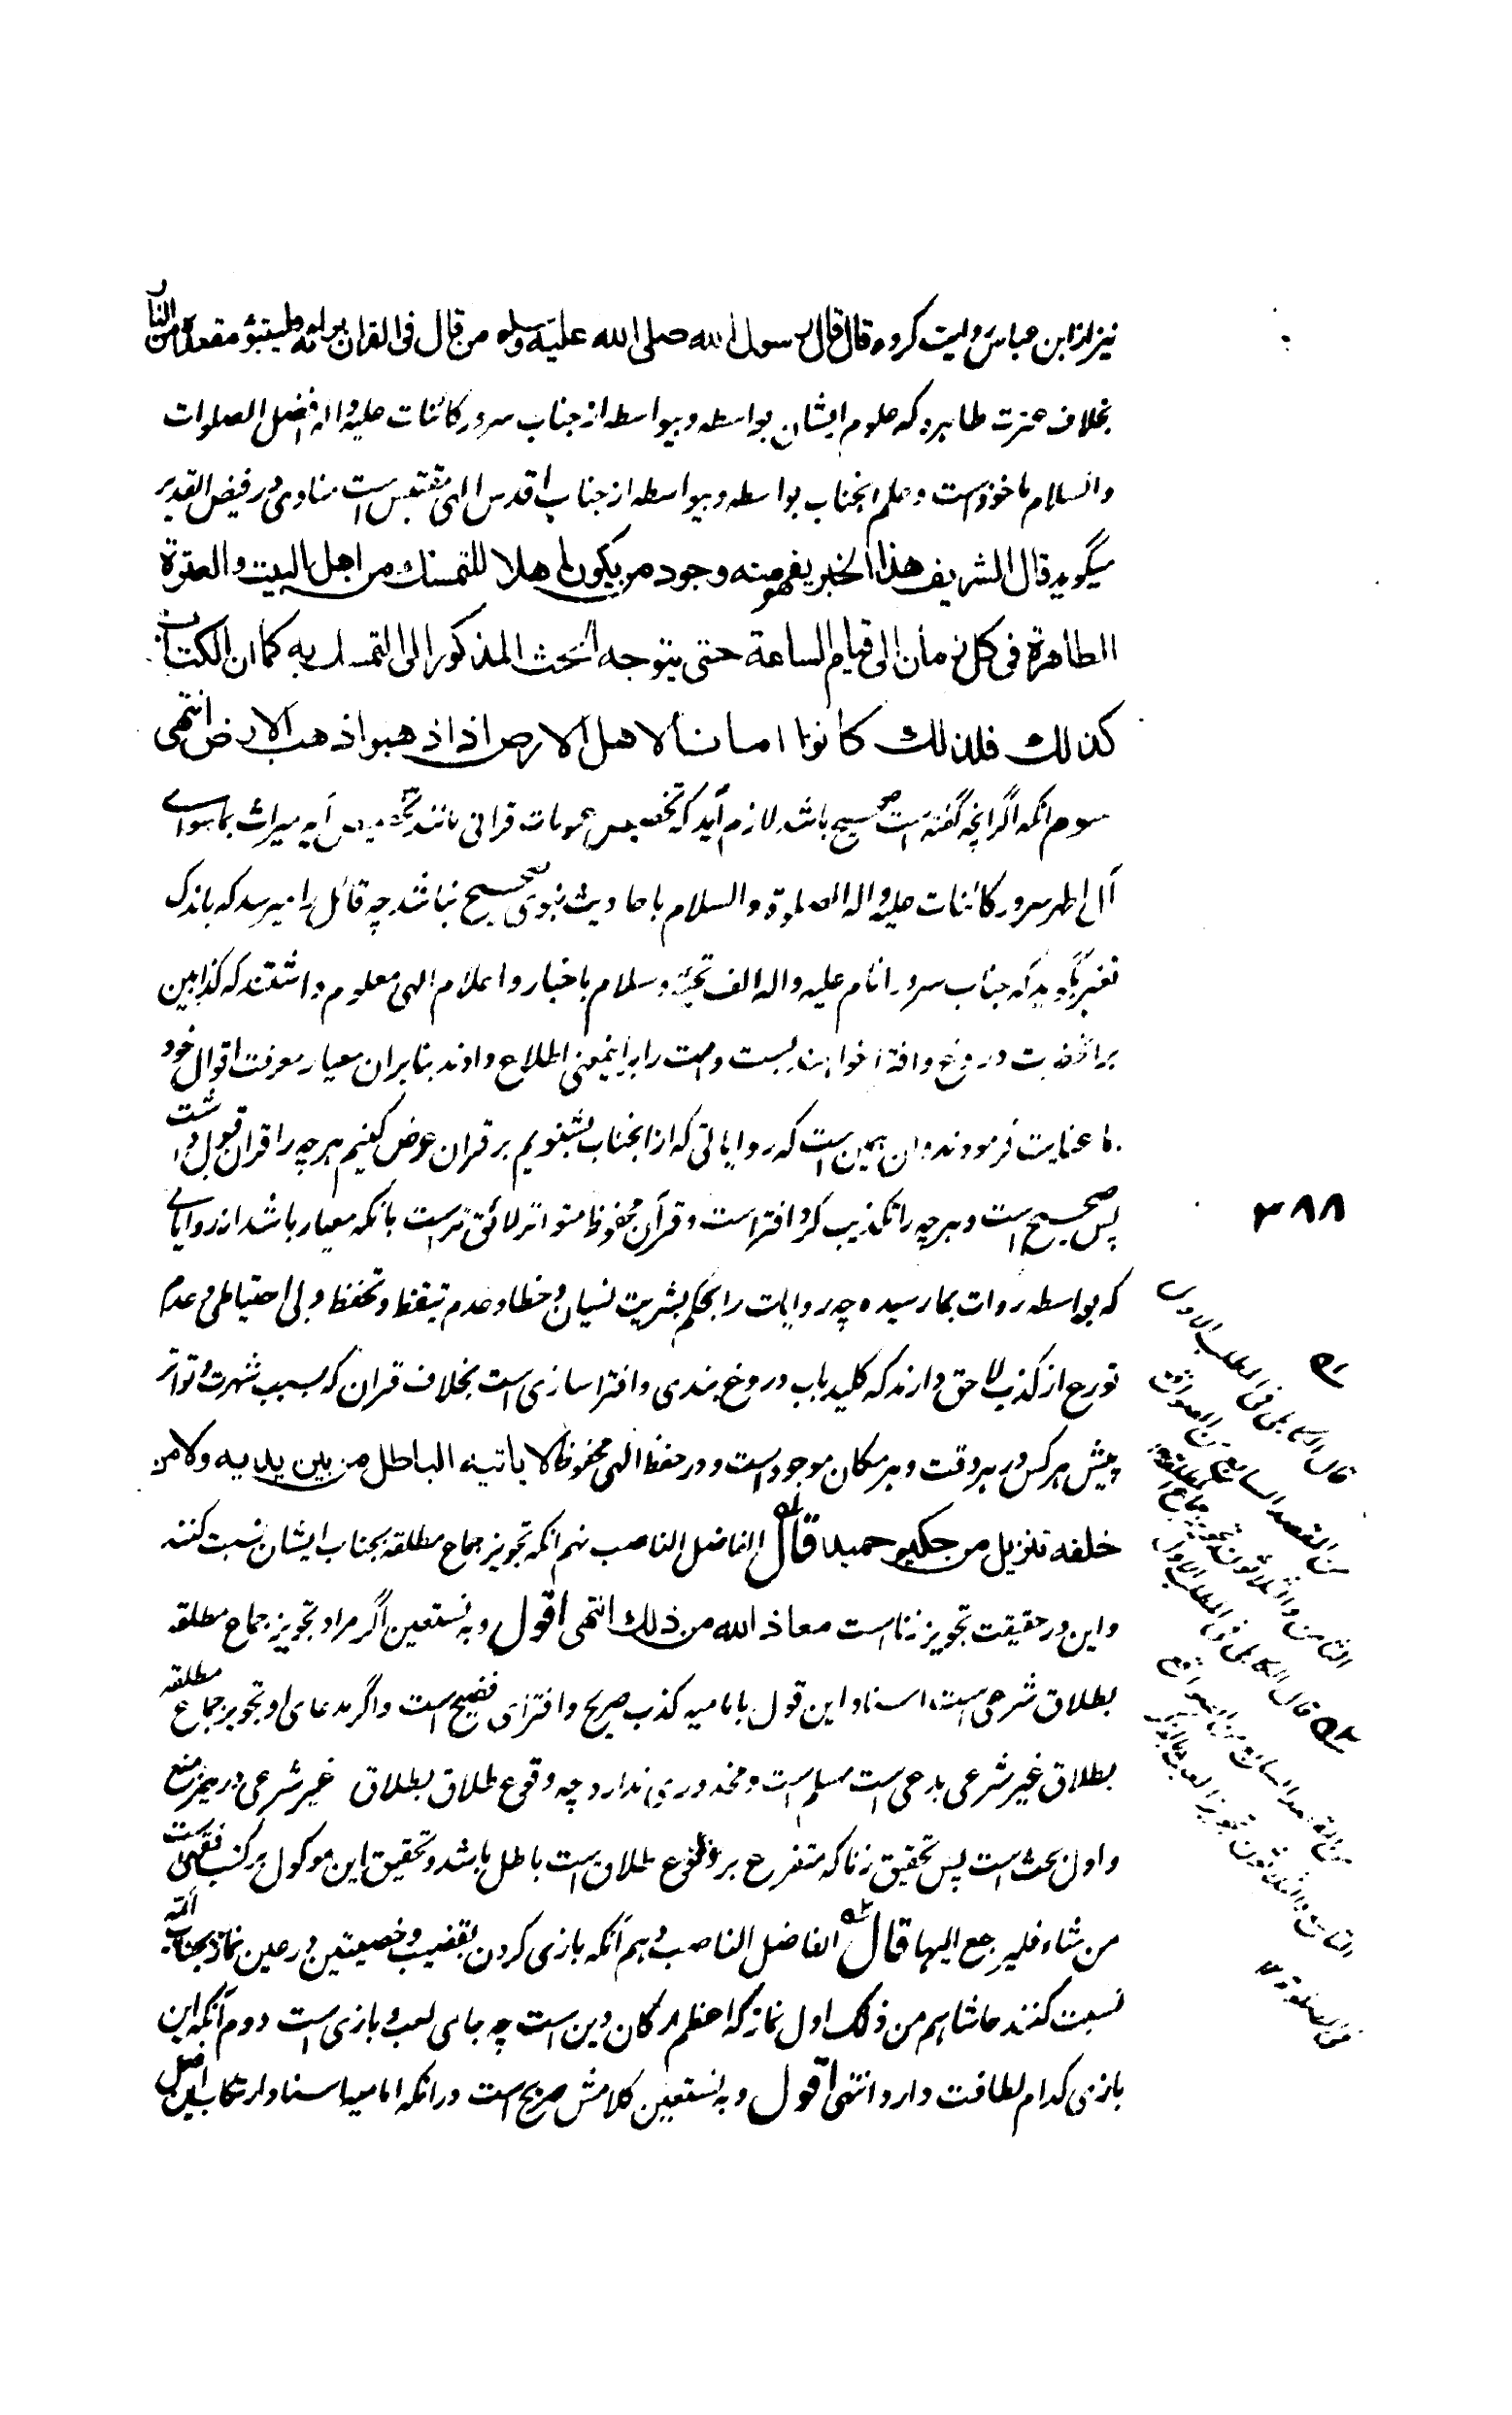 نیز از ابن عباس روایت کرده قال قال رسول الله صلی الله علیه وسلم من قال فی القران برایه فلیتبوّء مقعده من النار
بخلاف عترت طاهره که علوم ایشان بواسطه و بیواسطه از جناب سرور کائنات علیه واله افضل الصلوات
والسلام ماخوذست و علم انجناب بواسطه و بیواسطه از جناب اقدس الهی مقتبس است مناوی در فیض القدیر
میگوید قال الشریف هذا الخبر یفهم منه وجود من یکون اهلا للتمسک من اهل البیت والعترة
الطاهرة فی کل زمان الی قیام الساعة حتی یتوجه الحث المذکور الی التمسک به کما ان الکتاب
کذلک فلذلک کانوا امانا لاهل الارض اذا ذهبوا ذهب الارض انتهی
سوم انکه اگر انچه گفته است صحیح باشد لازم آید که تخصیص عمومات قرانی مانند تخصیص آیه میراث بماسوای
آل اطهر سرور کائنات علیه واله الصلوة والسلام باحادیث نبوی صحیح نباشد چه قائل را میرسد که باندک
تغیر بگوید که جناب سرور انام علیه واله الف تحیة وسلام باخبار و اعلام الهی معلوم داشتند که کذابین
برانحضرت دروغ و افترا خواهند بست و امت را باینمعنی اطلاع دادند بنابران معیار معرفت اقوال خود
بما عنایت فرمودند و ان همین است که روایاتی که از انجناب بشنویم بر قران عرض کنیم هرچه را قران قبول داشت
پس صحیح است و هرچه را تکذیب کرد افتراست و قرآن محفوظ متواتر لائق ترست بانکه معیار باشد از روایاتی
که بواسطه روات بما رسیده چه روایات را بحکم بشریت نسیان و خطا و عدم تیقظ و تحفظ و بی احتیاطی و عدم
تورع از کذب لاحق دارند که کلید باب دروغ بندی و افترا سازی است بخلاف قران که بسبب شهرت و تواتر
پیش هر کس در هر وقت و هر مکان موجودست و در حفظ الهی محفوظ لا یاتیه الباطل من بین یدیه ولا من
خلفه تنزیل من حکیم حمید قال الفاضل الناصب نهم انکه تجویز جماع مطلقه بجناب ایشان نسبت کنند
و این در حقیقت تجویز زناست معاذ الله من ذلک انتهی اقول و به نستعین اگر مراد تجویز جماع مطلقه
بطلاق شرعی است اسناد این قول بامامیه کذب صریح و افترای فضیح است و اگر مدعای او تجویز جماع مطلقه
بطلاق غیر شرعی بدعی است مسلم است و محذوری ندارد چه وقوع طلاق بطلاق غیر شرعی در حیز منع
و اول بحث است پس تحقیق زنا که متفرع بر وقوع طلاق است باطل باشد و تحقیق این موکول بر کتب فقهی است
من شاء فلیرجع الیها قال الفاضل الناصب دهم آنکه بازی کردن بقضیب و خصیتین در عین نماز بجناب ائمه
نسبت کنند حاشاهم من ذلک اول نماز که اعظم ارکان دین است چه جای لعب و بازی است دوم آنکه این
بازی کدام لطافت دارد انتهی اقول و به نستعین کلامش صریح است در انکه امامیه اسناد ارتکاب این فعل
۳۸۸
قال الکابلی فی المطلب الاول
من المقصد السابع
قال الکابلی فی المطلب الاول